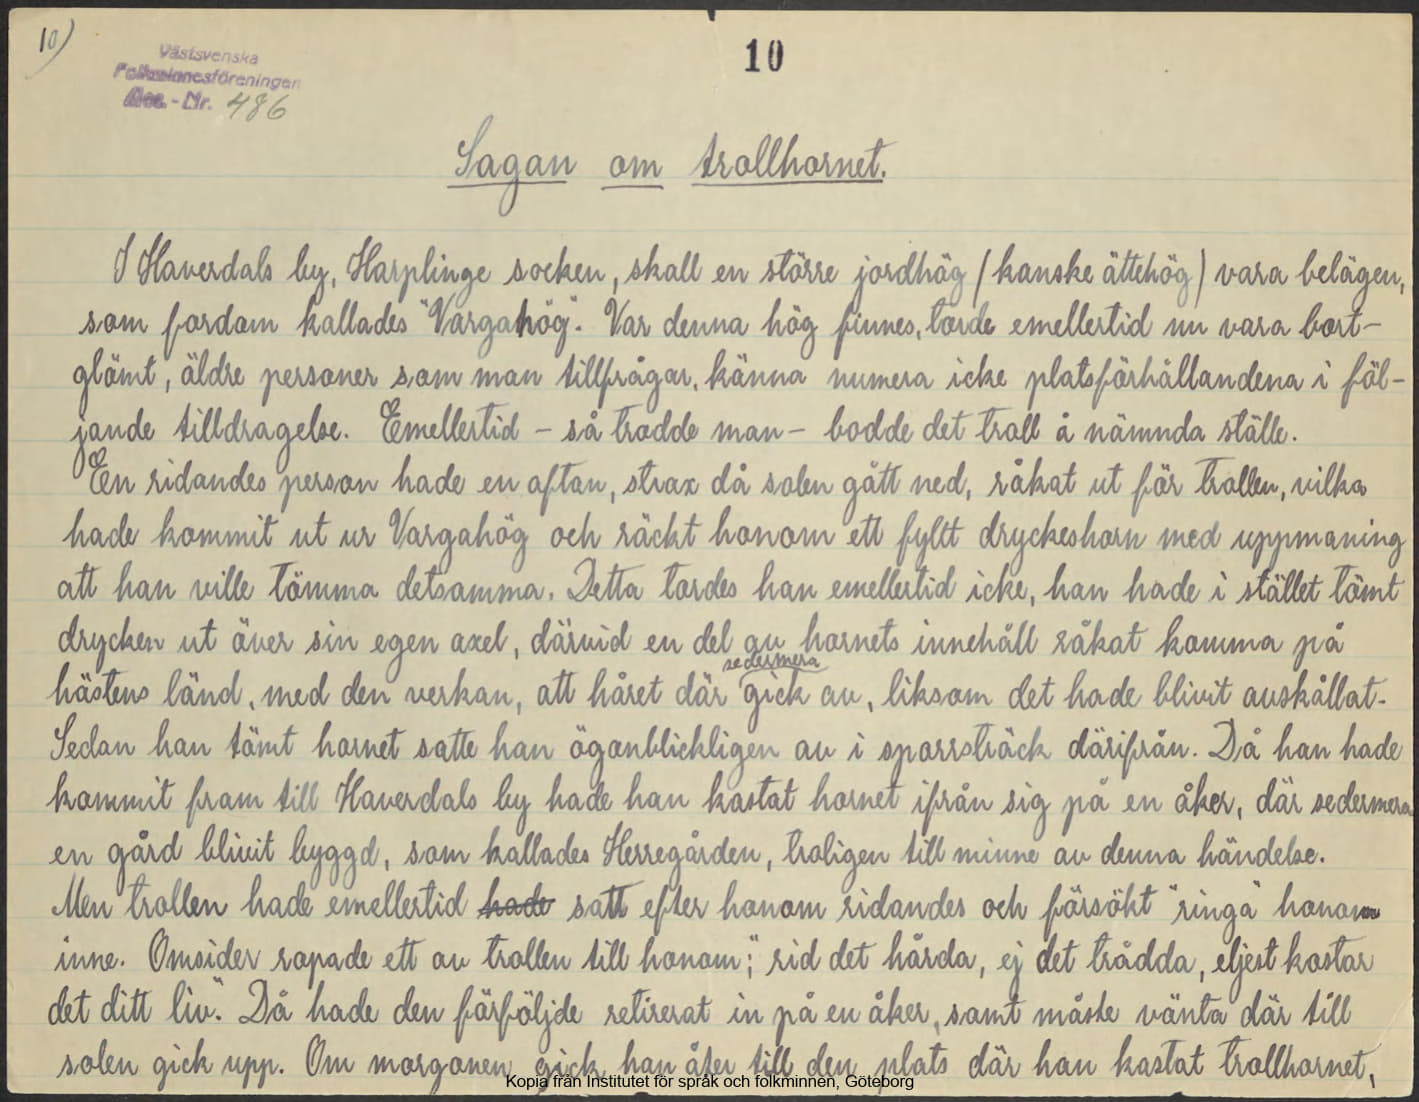 10)
Västsvenska
Folkminnesföreningen
Acc. - Nr. 486
10
Sagan om trollhornet.
I Haverdals by, Harplinge socken, skall en större jordhög (kanske ättehög) vara belägen,
som fordom kallades "Vargahög". Var denna hög finnes, torde emellertid nu vara bort-
glömt, äldre personer som man tillfrågar, känna numera icke platsförhållandena i föl-
jande tilldragelse. Emellertid - så trodde man - bodde det troll å nämnda ställe.
En ridandes person hade en afton, strax då solen gått ned, råkat ut för trollen, vilka
hade kommit ut ur Vargahög och räckt honom ett fyllt dryckeshorn med uppmaning
att han ville tömma detsamma. Detta tordes han emellertid icke, han hade i stället tömt
drycken ut över sin egen axel, därvid en del av hornets innehåll råkat komma på
sedermera
hästens länd, med den verkan, att håret där gick av, liksom det hade blivit avskållat.
Sedan han tömt hornet satte han ögonblickligen av i sporrsträck därifrån. Då han hade
kommit fram till Haverdals by hade han kastat hornet ifrån sig på en åker, där sedermera
en gård blivit byggd, som kallades Herregården, troligen till minne av denna händelse.
Men trollen hade emellertid hade satt efter honom ridandes och försökt "ringa" honom
inne. Omsider ropade ett av trollen till honom; "rid det hårda, ej det trådda, eljest kostar
det ditt liv". Då hade den förföljde retirerat in på en åker, samt måste vänta där till
solen gick upp. Om morgonen gick han åter till den plats där han kastat trollhornet,
Kopia från Institutet för språk och folkminnen, Göteborg